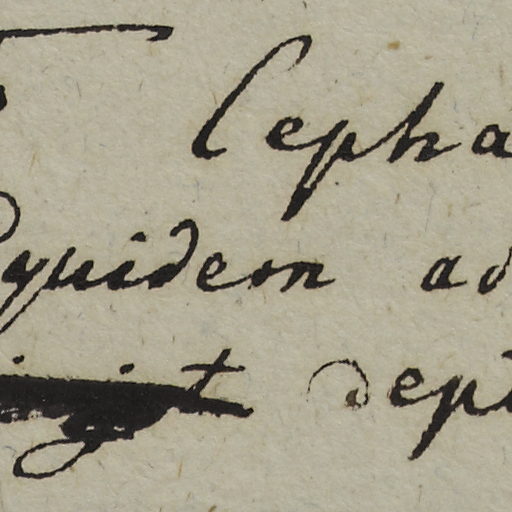 Cepha
quidem ad
dept